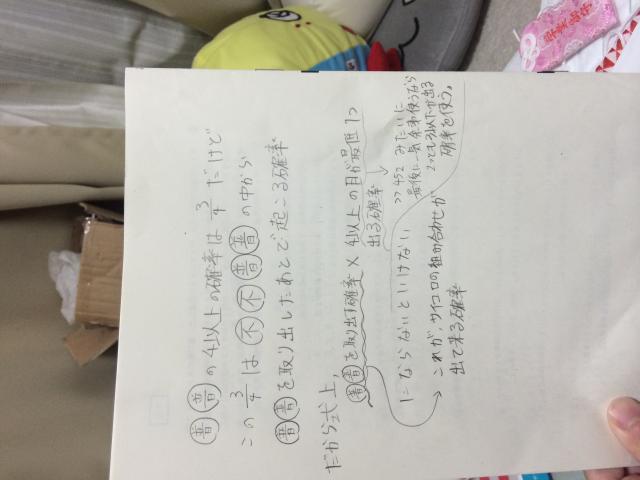 普普の4以上の確率は 3/4 だけど
この 3/4 は不不普普の中から
普普を取り出したあとで起こる確率
だから式上、
普普を取り出す確率 × 4以上の目が最低1つ
出る確率
>>452 みたいに
最後に一気余事使うなら
2つとも3以下が出る
確率を使う。
にならないといけない
これが、サイコロの組み合わせが
出て来る確率